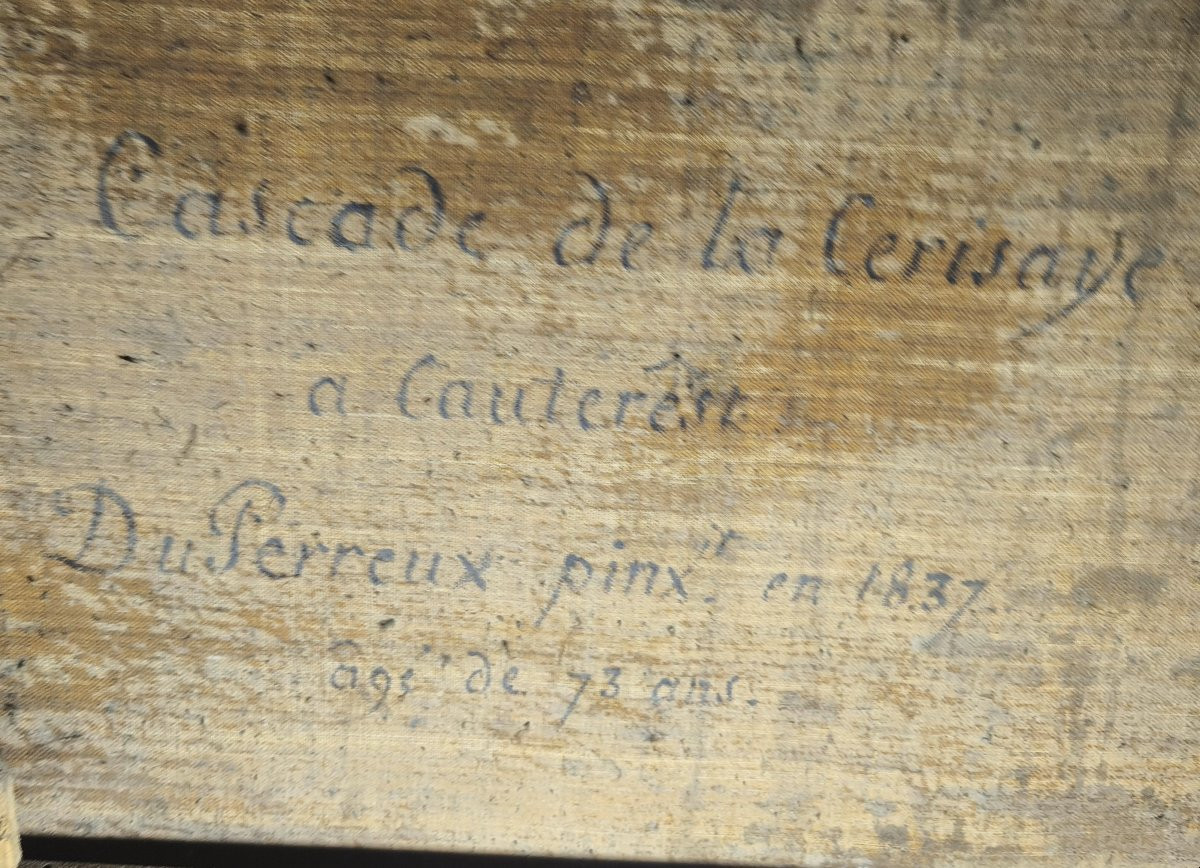 Cascade de la Cerisaye
a Cauterêst
DuPerreux pinxit. en 1837.
âgé de 73 ans.